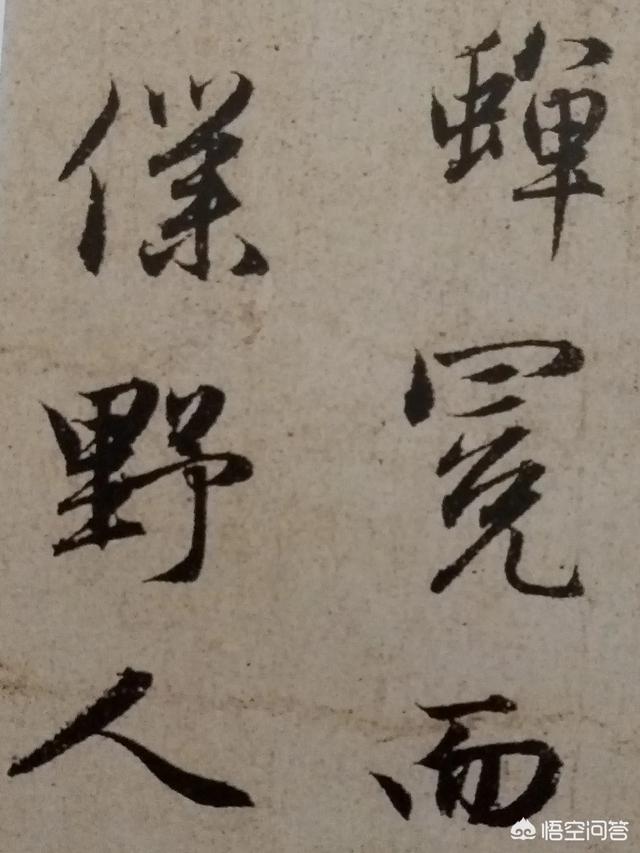 蟬冕而
僕野人
悟空问答